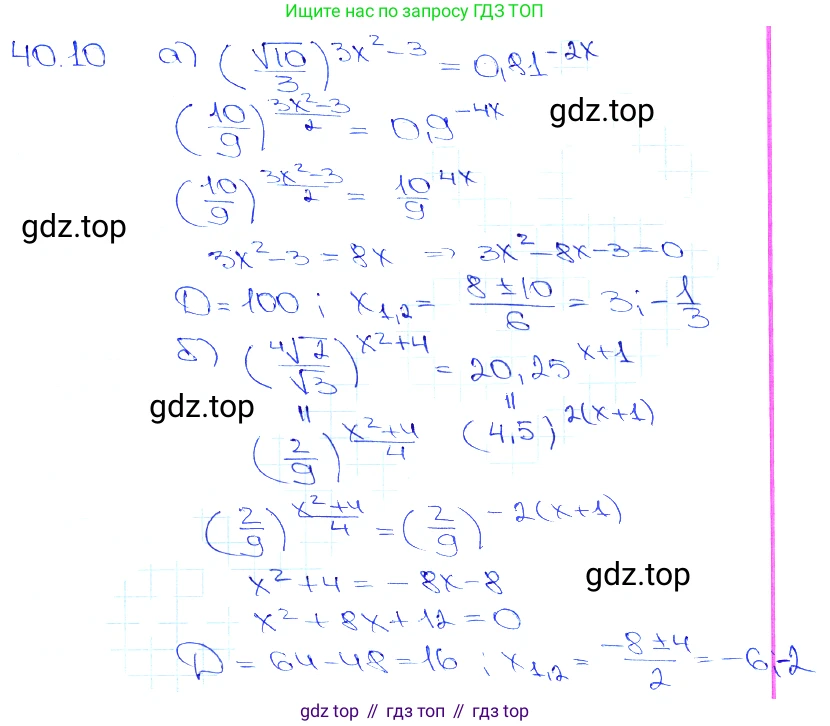 Ищите нас по запросу ГДЗ ТОП
40.10 а) (√10/3)^(3x²-3) = 0,81^(-2x)
(10/9)^((3x²-3)/2) = 0,9^(-4x)
gdz.top
(10/9)^((3x²-3)/2) = 10/9^(4x)
gdz.top
3x²-3=8x ⇒ 3x²-8x-3=0
D=100; x₁,₂= (8±10)/6 = 3; -1/3
б) (⁴√2/√3)^(x²+4) = 20,25^(x+1)
gdz.top
॥ ॥
(2/9)^((x²+4)/4) (4,5)^(2(x+1))
(2/9)^((x²+4)/4) = (2/9)^(-2(x+1))
x²+4=-8x-8
gdz.top
x²+8x+12=0
D=64-48=16; x₁,₂= (-8±4)/2 = -6; -2
gdz top // гдз топ // гдз top